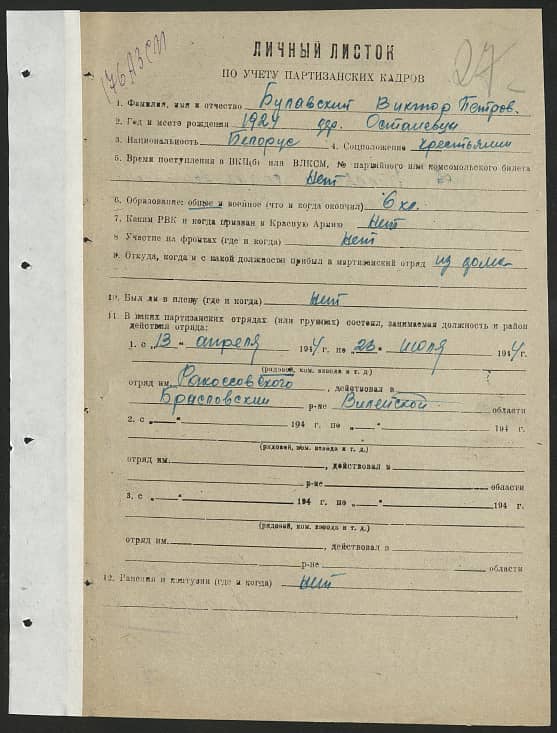 176 АЗСМ
27
ЛИЧНЫЙ ЛИСТОК
ПО УЧЕТУ ПАРТИЗАНСКИХ КАДРОВ
1. Фамилия, имя и отчество Булавский Виктор Петров.
2. Год и место рождения 1924 дер.
3. Национальность Белорус 4. Соцположение крестьянин
5. Время поступления в ВКП(б) или ВЛКСМ, № партийного или комсомольского билета
Нет
6. Образование: общее и военное (что и когда окончил) 6 кл.
7. Каким РВК и когда призван в Красную Армию Нет
8. Участие на фронтах (где и когда) Нет
9. Откуда, когда и с какой должности прибыл в партизанский отряд из дома
10. Был ли в плену (где и когда) Нет
11. В каких партизанских отрядах (или группах) состоял, занимаемая должность и район
действия отряда:
1. с „13 “ апреля 1944 г. по „23 “ июля 1944 г.
(рядовой, ком. взвода и т. д.)
отряд им. Рокоссовского, действовал в
Брасловский р-не Вилейской области
2. с „ “ 194 г. по „ “ 194 г.
(рядовой, ком. взвода и т. д.)
отряд им. , действовал в
р-не области
3. с „ “ 194 г. по „ “ 194 г.
(рядовой, ком. взвода и т. д.)
отряд им. , действовал в
р-не области
12. Ранения и контузии (где и когда) Нет